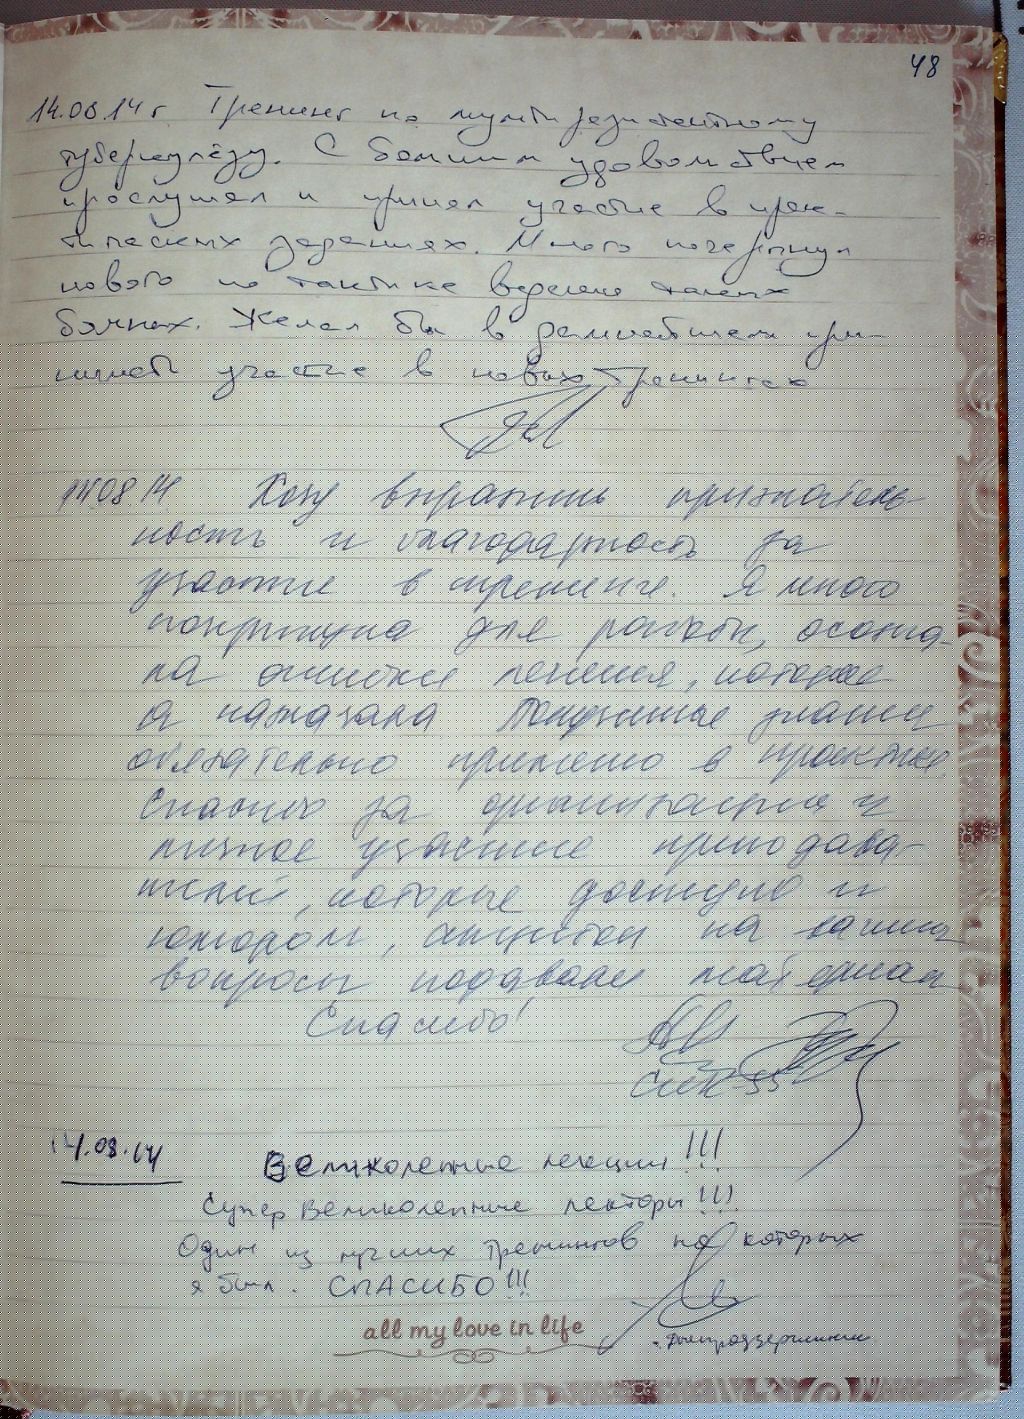 48
14.08.14г. Тренинг по мультирезистентному
туберкулёзу. С большим удовольствием
прослушал и принял участие в прак-
тических заданиях. Много почерпнул
нового по тактике ведения таких
больных. Желал бы в дальнейшем при-
нимать участие в новых тренингах
14.08.14 Хочу выразить признатель-
ность и благодарность за
участие в тренинге. Я много
почерпнула для работы, осозна-
ла ошибки лечения, которое
я назначала Полученные знания
обязательно применю в практике.
Спасибо за организацию и
личное участие преподава-
телей, которые доступно и
юмором, на ваши
вопросы подавали материал
Спасибо!
14.08.14
Великолепные лекции!!!
Супер Великолепные лекторы!!!
Один из лучших тренингов на которых
я был. СПАСИБО!!!
all my love in life
г. Днепродзержинск